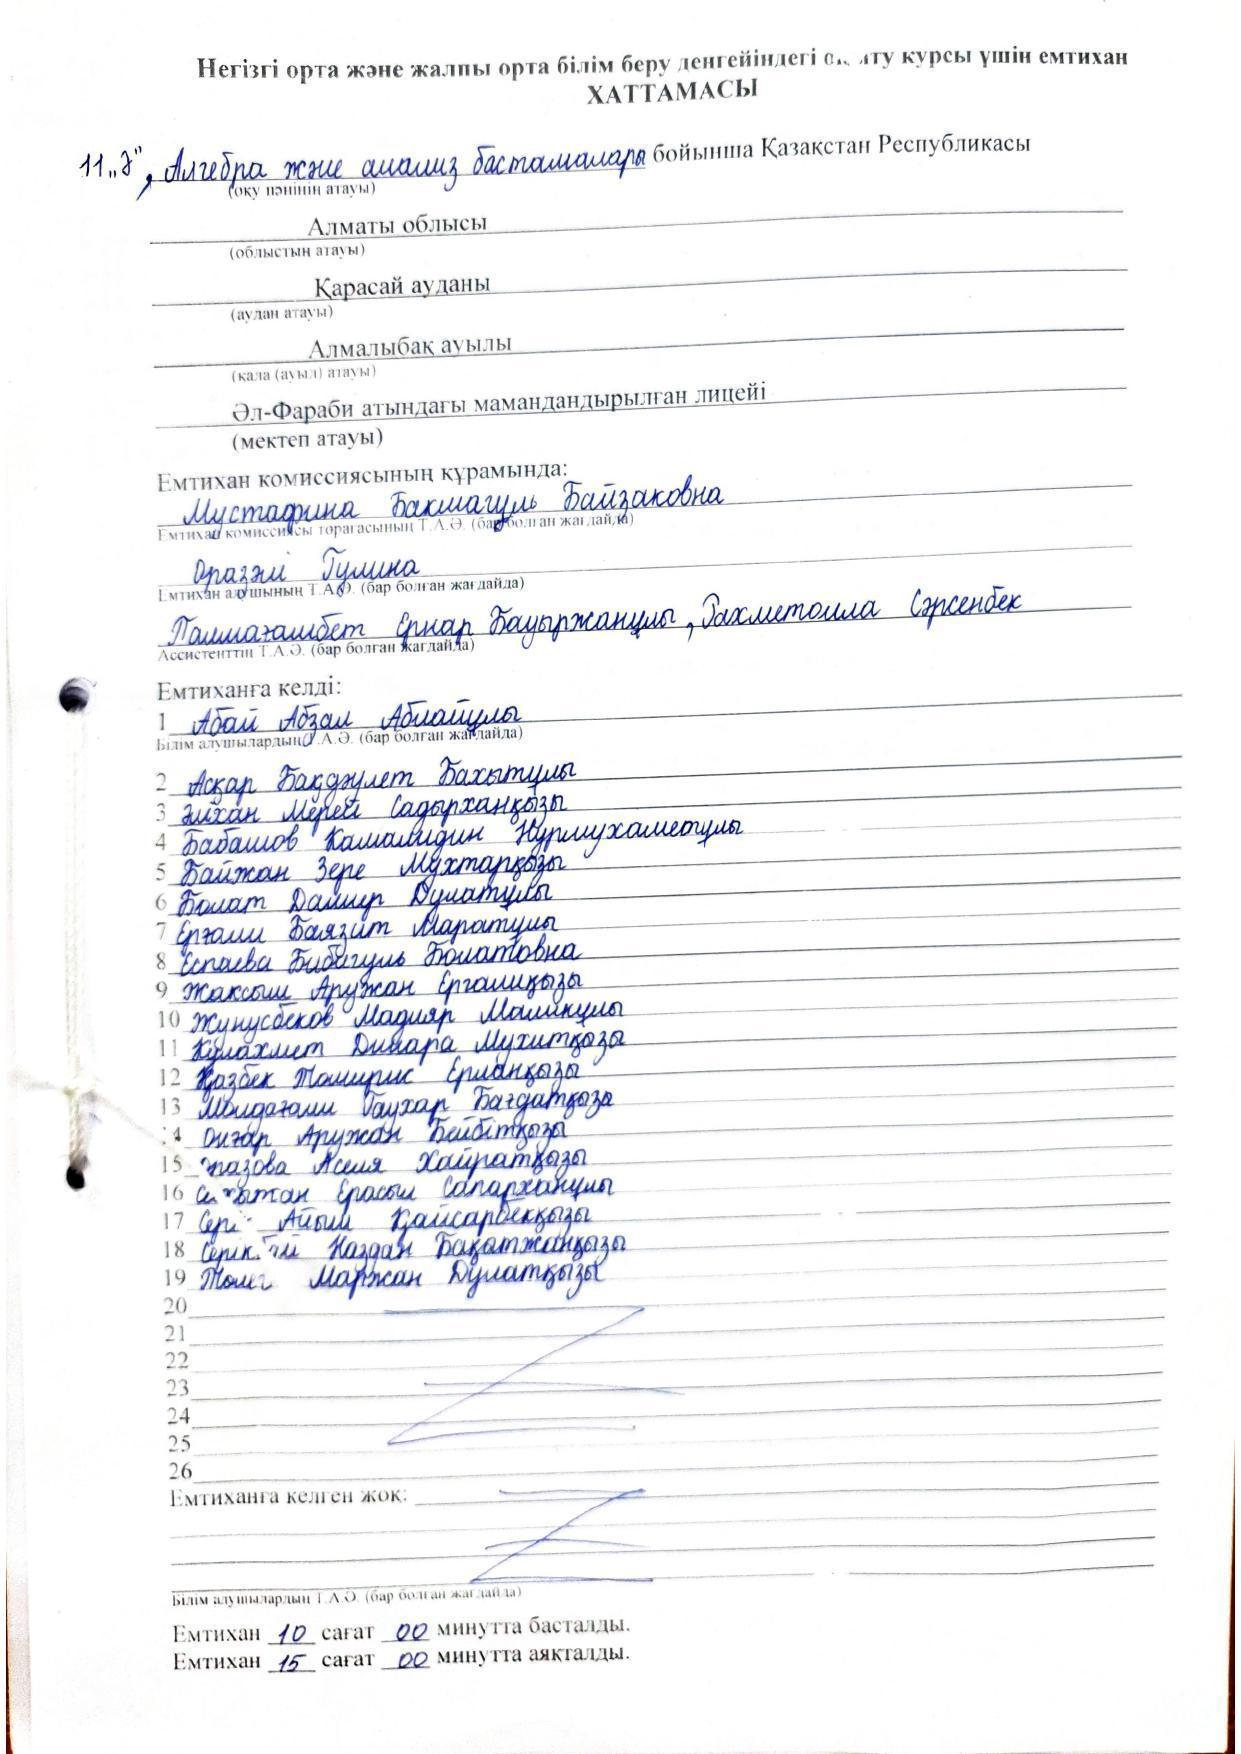 Негізгі орта және жалпы орта білім беру деңгейіндегі курсы үшін емтихан
ХАТТАМАСЫ
11 „Ә", Алгебра және анализ бастамалары бойынша Қазақстан Республикасы
(оқу пәнінің атауы)
Алматы облысы
(облыстың атауы)
Қарасай ауданы
(аудан атауы)
Алмалыбақ ауылы
(қала (ауыл) атауы)
Әл-Фараби атындағы мамандандырылған лицейі
(мектеп атауы)
Емтихан комиссиясының құрамында:
Мустафина Бакмагуль Байзаковна
Емтихан комиссиясы төрағасының Т.А.Ә. (бар болған жағдайда)
Оразәлі Гулина
Емтихан алушының Т.А.Ә. (бар болған жағдайда)
Палмағамбет Ернар Бауыржанұлы, Рахметолла Сәрсенбек
Ассистенттің Т.А.Ә. (бар болған жағдайда)
Емтиханға келді:
1 Абай Абзал Абылайұлы
Білім алушылардың Т.А.Ә. (бар болған жағдайда)
2 Асқар Бақдәулет Бахытұлы
3 Әлихан Мерей Садырханқызы
4 Бабашов Камалидин Нұрмухаметұлы
5 Байжан Зере Мұхтарқызы
6 Болат Дамир Дулатұлы
7 Ерғали Баязит Маратұлы
8 Еспаева Бибигуль Болатовна
9 Жаксыш Аружан Ергалиқызы
10 Жунусбеков Мадияр Маликұлы
11 Құлахмет Динара Мухитқызы
12 Қазбек Томирис Ерланқызы
13 Молдағали Гаухар Бағдатқызы
14 Оңғар Аружан Бейбітқызы
15 Аселя Хайратқызы
16 Ерасыл Сапарханұлы
17 Айым Қайсарбекқызы
18 Наздан Бақытжанқызы
19 Маржан Дулатқызы
20
21
22
23
24
25
26
Емтиханға келген жоқ:
Білім алушылардың Т.А.Ә. (бар болған жағдайда)
Емтихан 10 сағат 00 минутта басталды.
Емтихан 15 сағат 00 минутта аяқталды.